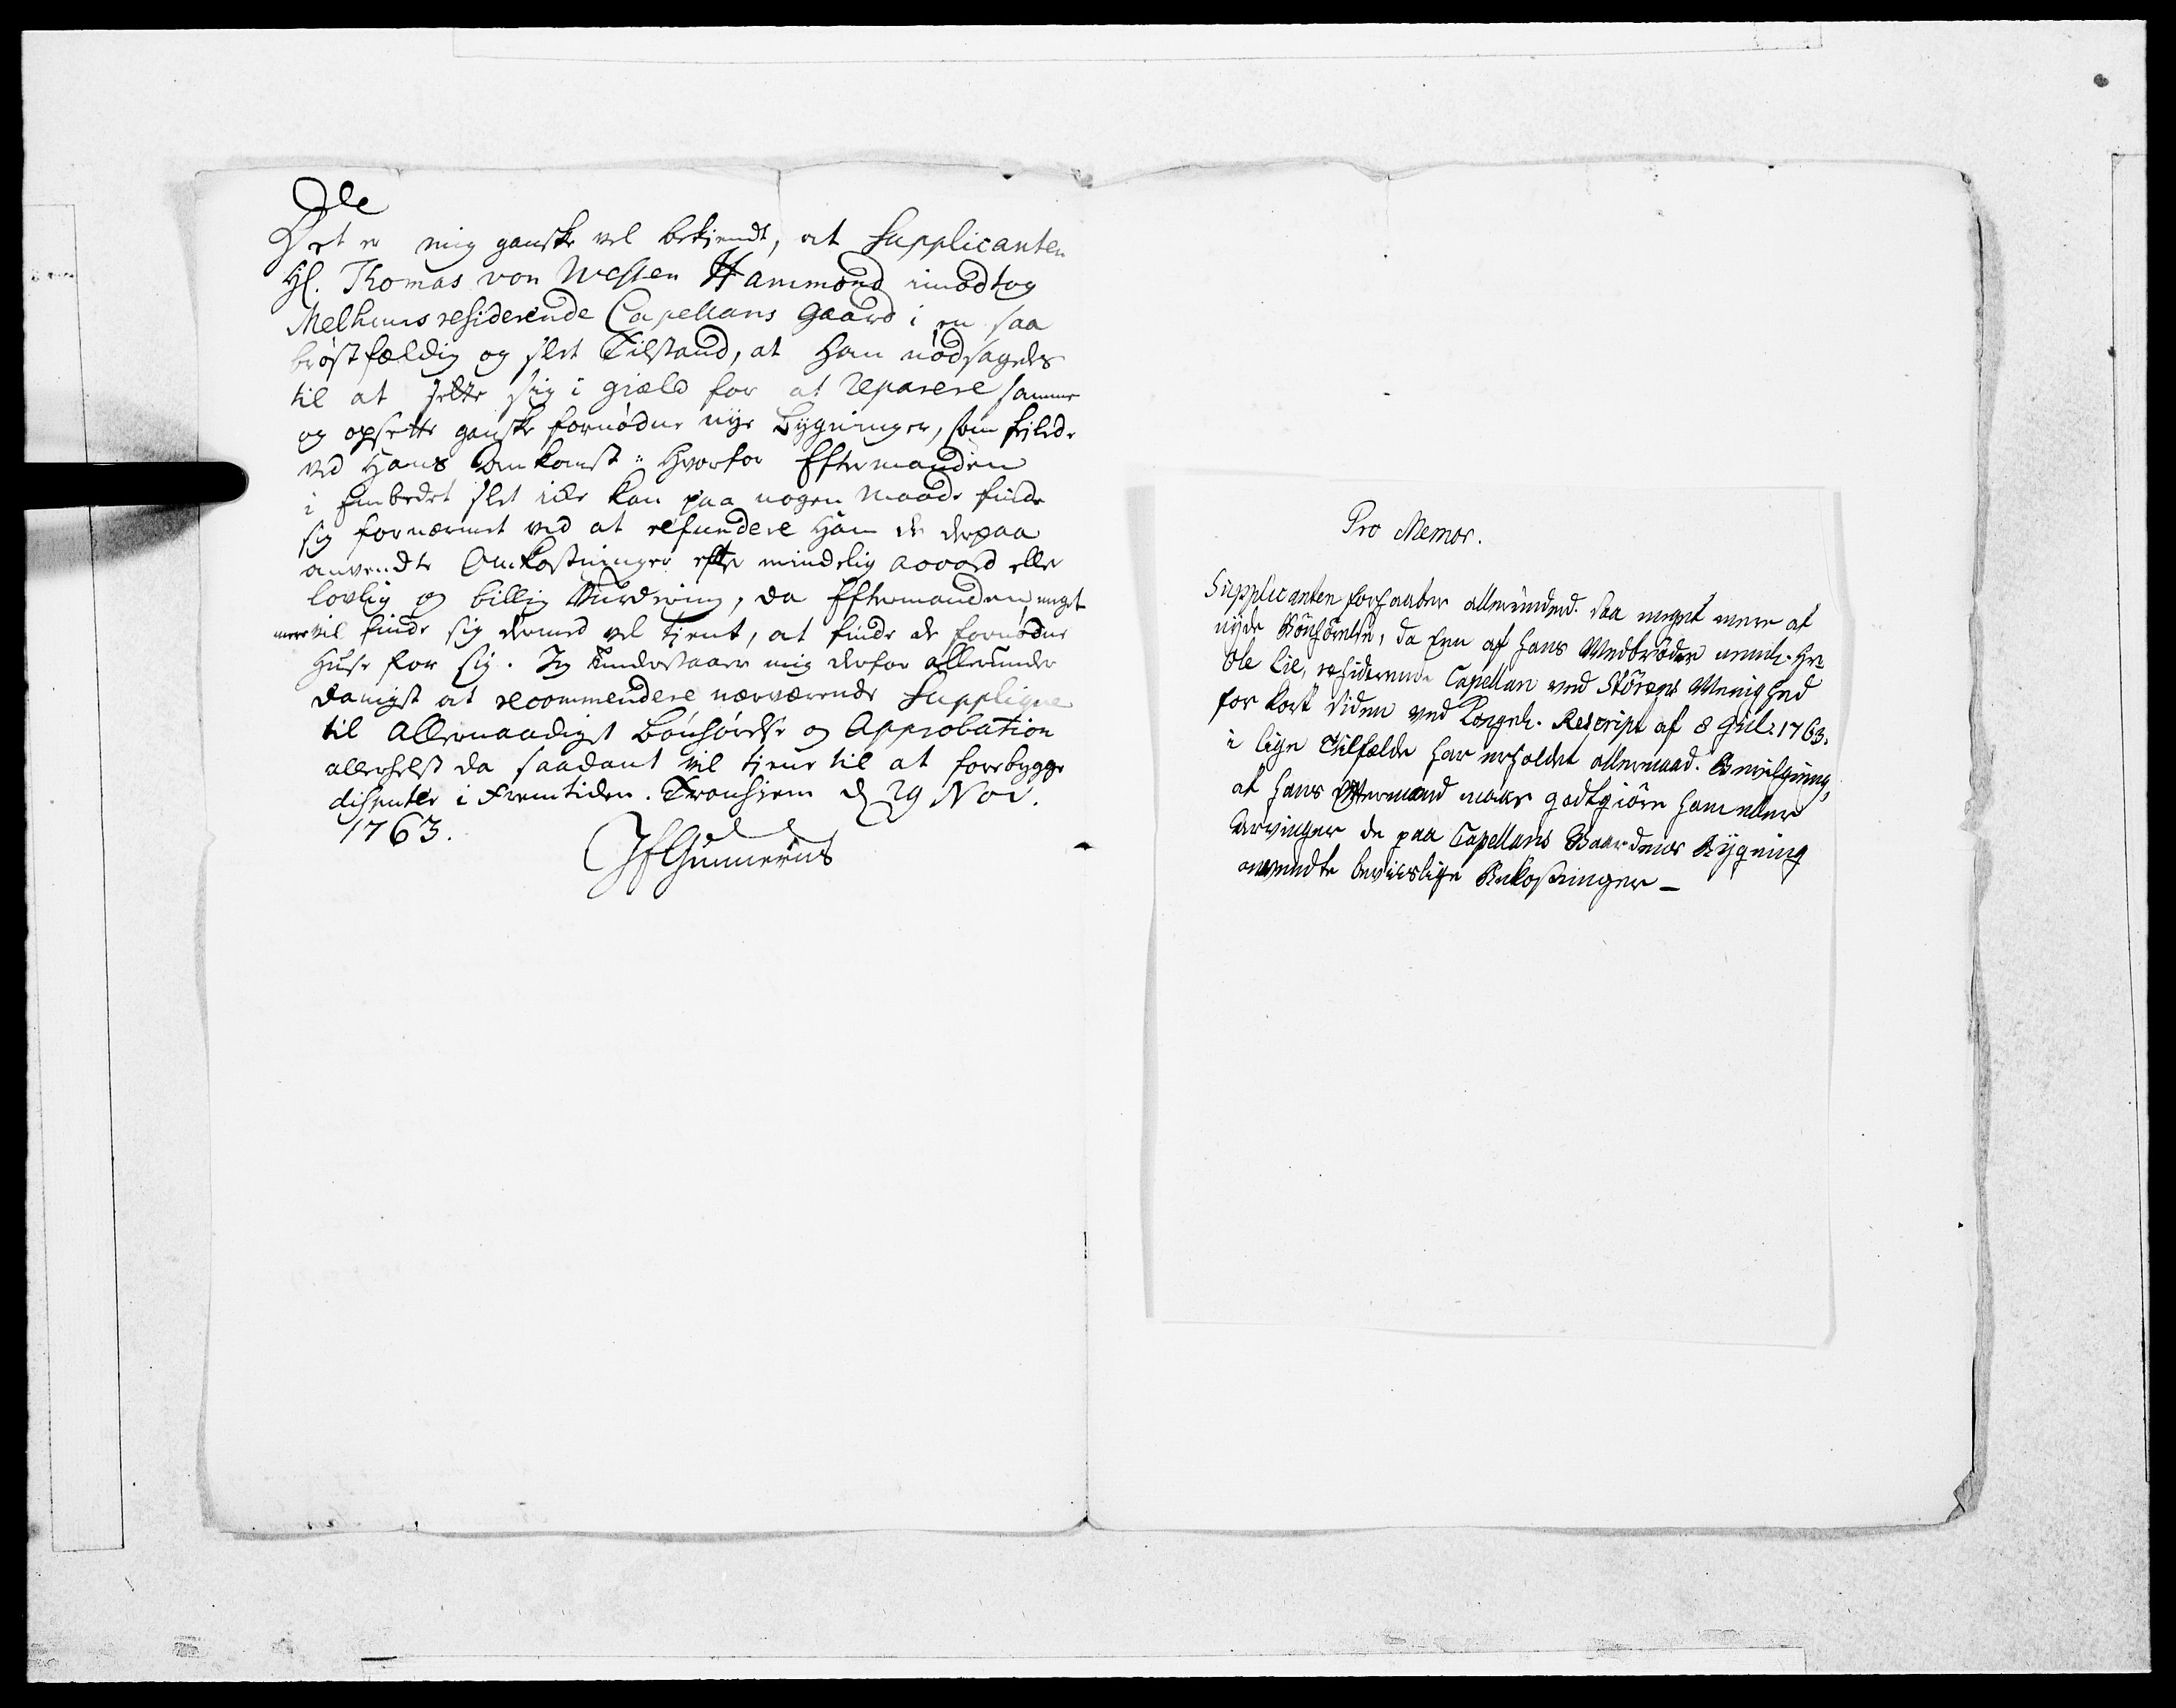 Det er mig ganske vel bekiendt, at Supplicanten
Hl. Thomas von Westen Hammond imodtog
Melhuus residerende Capellans Gaard i en saa
brøstfældig og slet Tilstand, at Han nødsagedes
til at sette sig i Giæld for at reparere samme
og opsette ganske fornødne nye Bygninger, som feilede
ved Hans Ankomst: Hvorfor Eftermanden
i Embedet slet icke kan paa nogen Maade finde
sig fornærmet ved at refundere Ham de derpaa
anvendte Omkostninger efter mindelig accord eller
lovlig og billig Vurdering, da Eftermanden meget
mere vil finde sig dermed vel tient, at finde de fornødne
Huse for sig. Jeg understaaer mig derfor allerunder
danigst at recommendere nærværende Supplique
til Allernaadigst Bønhørelse og Approbation
allerhelst da saadant vil tiene til at forebygge
disputer i Fremtiden. Tronhiem d 29 Nov.
1763.
JEGunnerus
Pro Memor.
Supplicanten forhaaber allerunderd. saa meget mere at
nyde Bønhørelse, da Een af hans Medbrødre nemlig Hr.
Ole Lie, residerende Capellan ved Størens Menighed
for kort siden ved Kongel. Rescript af 8 Jul. 1763.
i lige Tilfælde har erholdet allernaad. Bevilgning,
at hans Eftermand maae godtgiøre ham eller
Arvinger de paa Capellans Gaardens Bygning
anvendte beviislige Bekostninger _